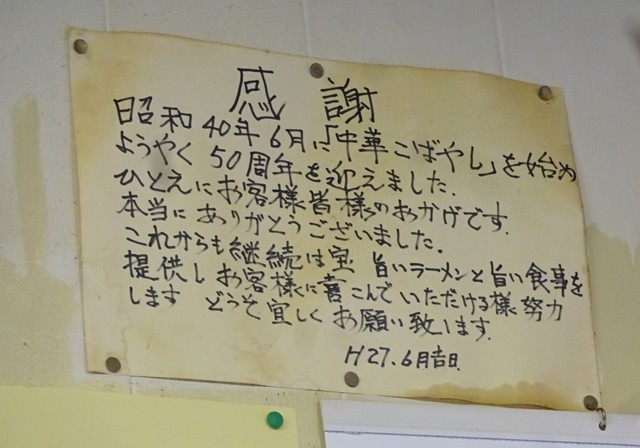 感謝
昭和40年6月に「中華こばやし」を始め
ようやく50周年を迎えました.
ひとえにお客様皆様のおかげです.
本当にありがとうございました.
これからも継続は宝 旨いラーメンと旨い食事を
提供しお客様に喜こんでいただける様努力
します どうぞ宜しくお願い致します.
H27.6月吉日.